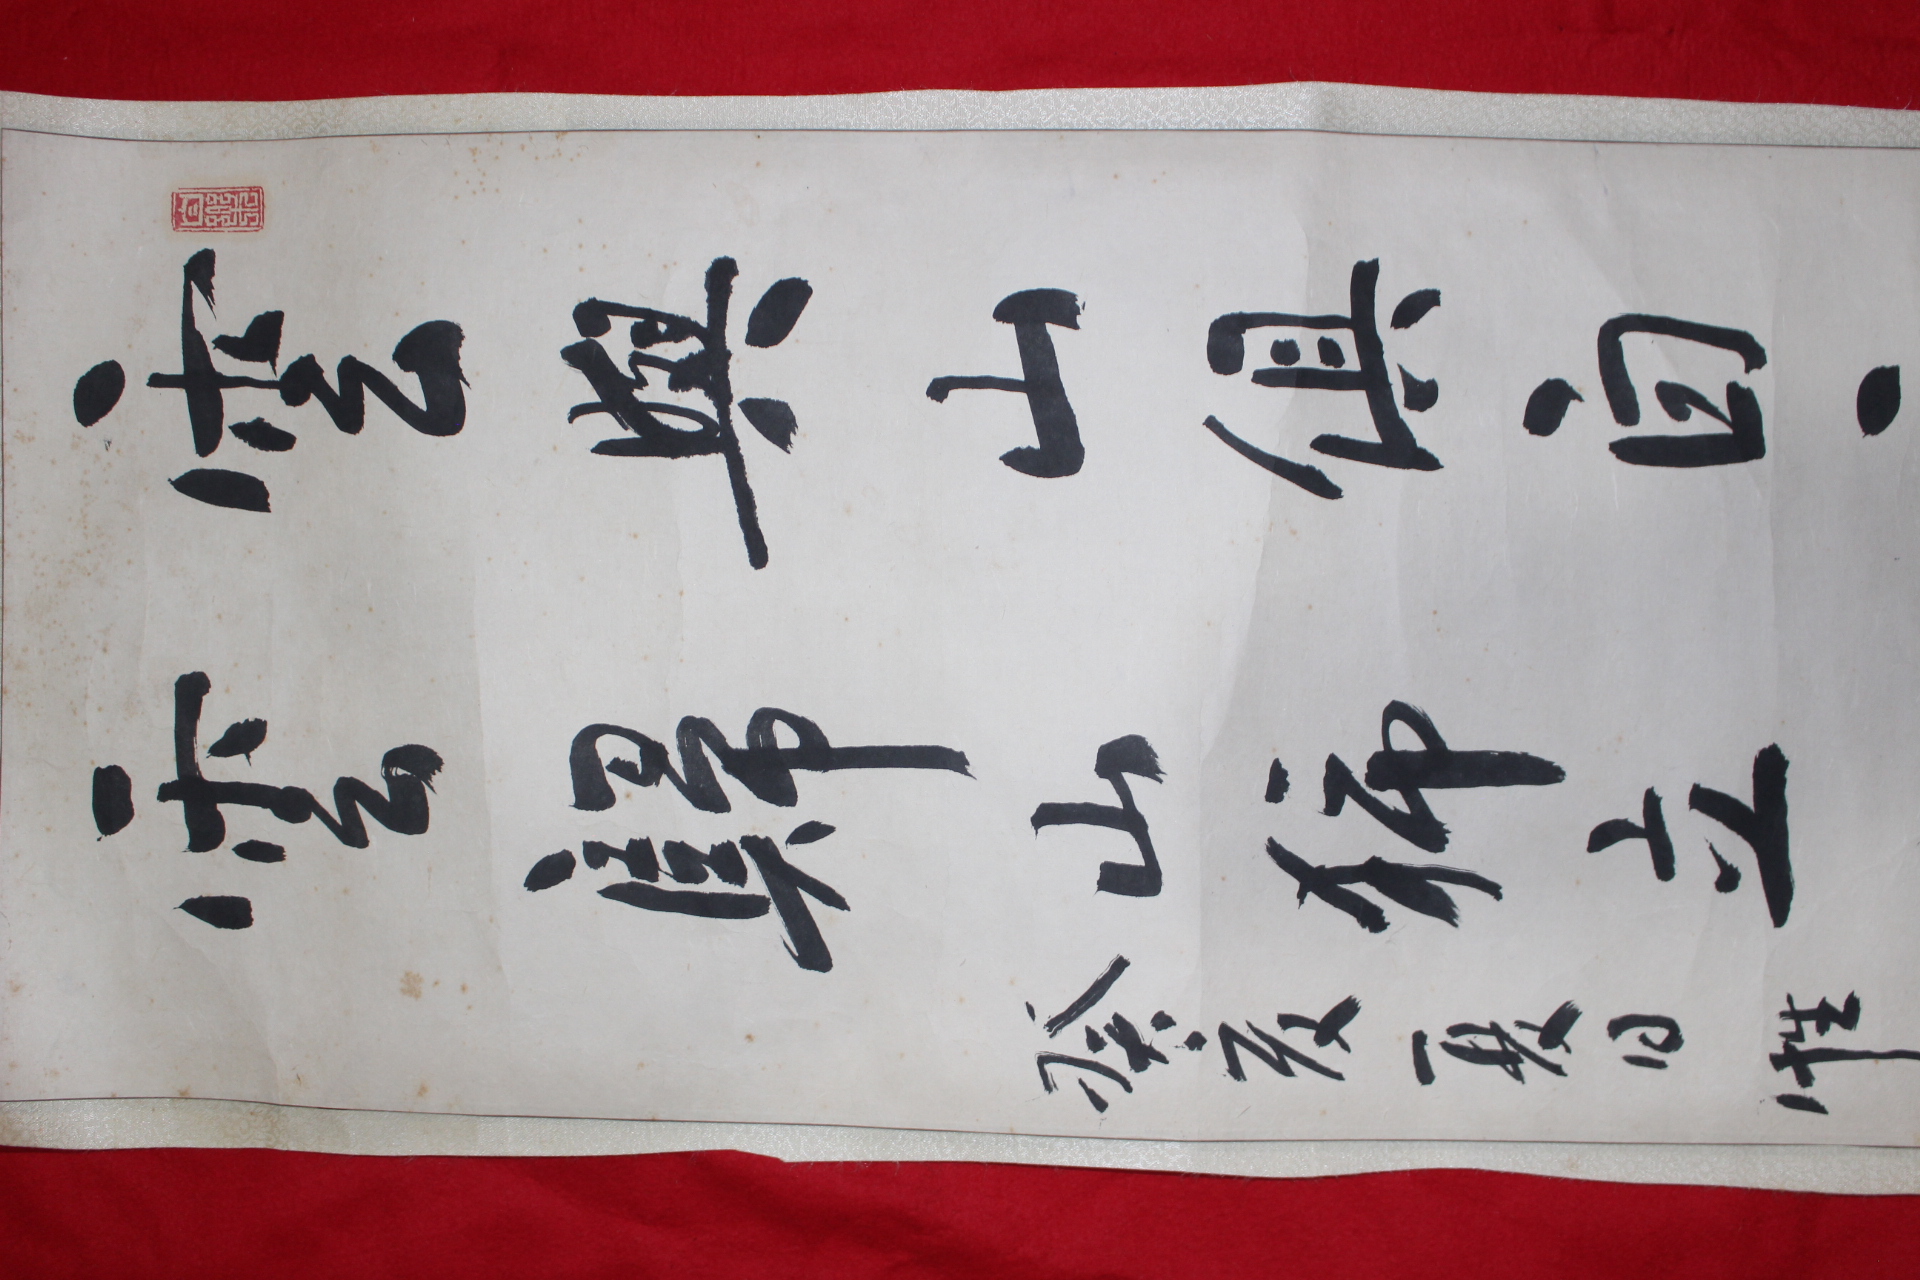 雲與山俱白
雲歸山獨立
癸亥夏日惟